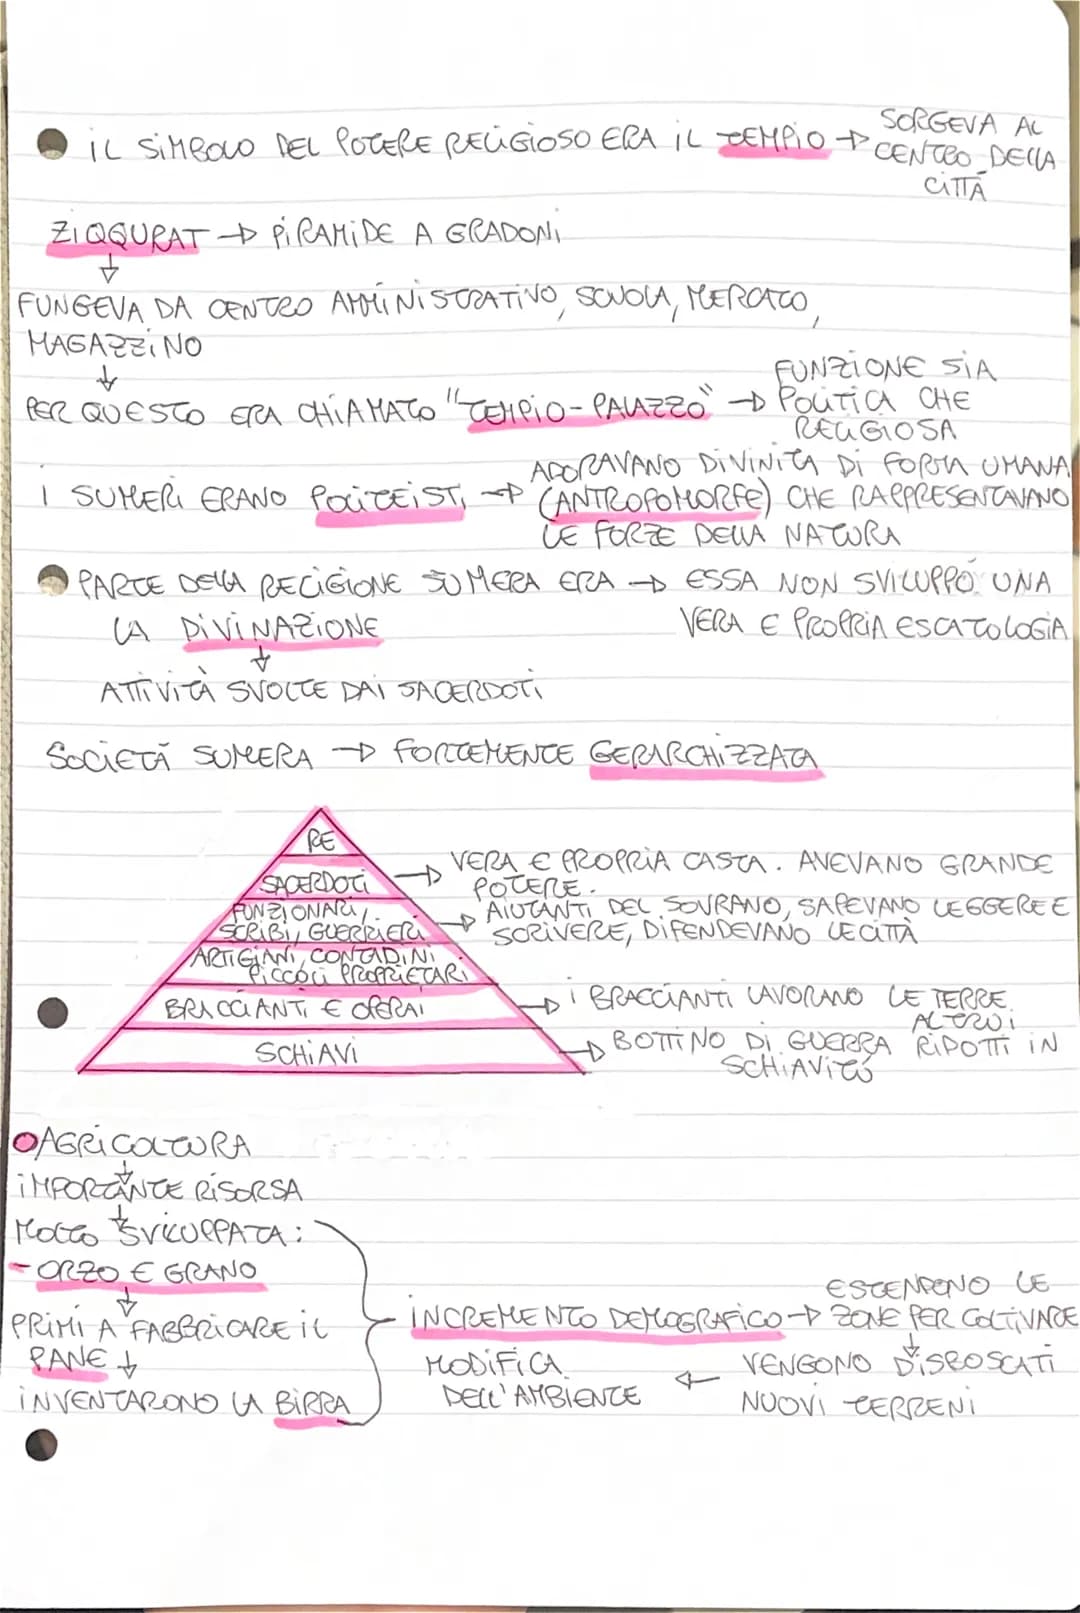 IL SIMBOLO DEL POTERE RELIGIOSO ERA IL TEMPIO → SORGEVA AL
CENTRO DELLA
CITTÀ
ZIQQURAT → PIRAMIDE A GRADONI
↓
FUNGEVA DA CENTRO AMMINISTRATIVO, SCUOLA, MERCATO,
MAGAZZINO
↓
PER QUESTO ERA CHIAMATO "TEMPIO-PALAZZO" → FUNZIONE SIA
POLITICA CHE
RELIGIOSA
I SUMERI ERANO POLITEISTI → ADORAVANO DIVINITÀ DI FORMA UMANA
(ANTROPOMORFE) CHE RAPPRESENTAVANO
LE FORZE DELLA NATURA
PARTE DELLA RELIGIONE SUMERA ERA → ESSA NON SVILUPPÒ UNA
LA DIVINAZIONE VERA E PROPRIA ESCATOLOGIA
↓
ATTIVITÀ SVOLTE DAI SACERDOTI
SOCIETÀ SUMERA → FORTEMENTE GERARCHIZZATA
RE
SACERDOTI → VERA E PROPRIA CASTA. AVEVANO GRANDE
POTERE.
FUNZIONARI,
SCRIBI, GUERRIERI → AIUTANTI DEL SOVRANO, SAPEVANO LEGGERE E
SCRIVERE, DIFENDEVANO LE CITTÀ
ARTIGIANI, CONTADINI
PICCOLI PROPRIETARI
BRACCIANTI E OPERAI → I BRACCIANTI LAVORANO LE TERRE
ALTRUI
SCHIAVI → BOTTINO DI GUERRA RIDOTTI IN
SCHIAVITÙ
AGRICOLTURA
↓
IMPORTANTE RISORSA
↓
MOLTO SVILUPPATA:
- ORZO E GRANO
↓
PRIMI A FABBRICARE IL
PANE ↓
INVENTARONO LA BIRRA
INCREMENTO DEMOGRAFICO → ESTENDONO LE
ZONE PER COLTIVARE
↓
VENGONO DISBOSCATI
NUOVI TERRENI
← MODIFICA
DELL'AMBIENTE